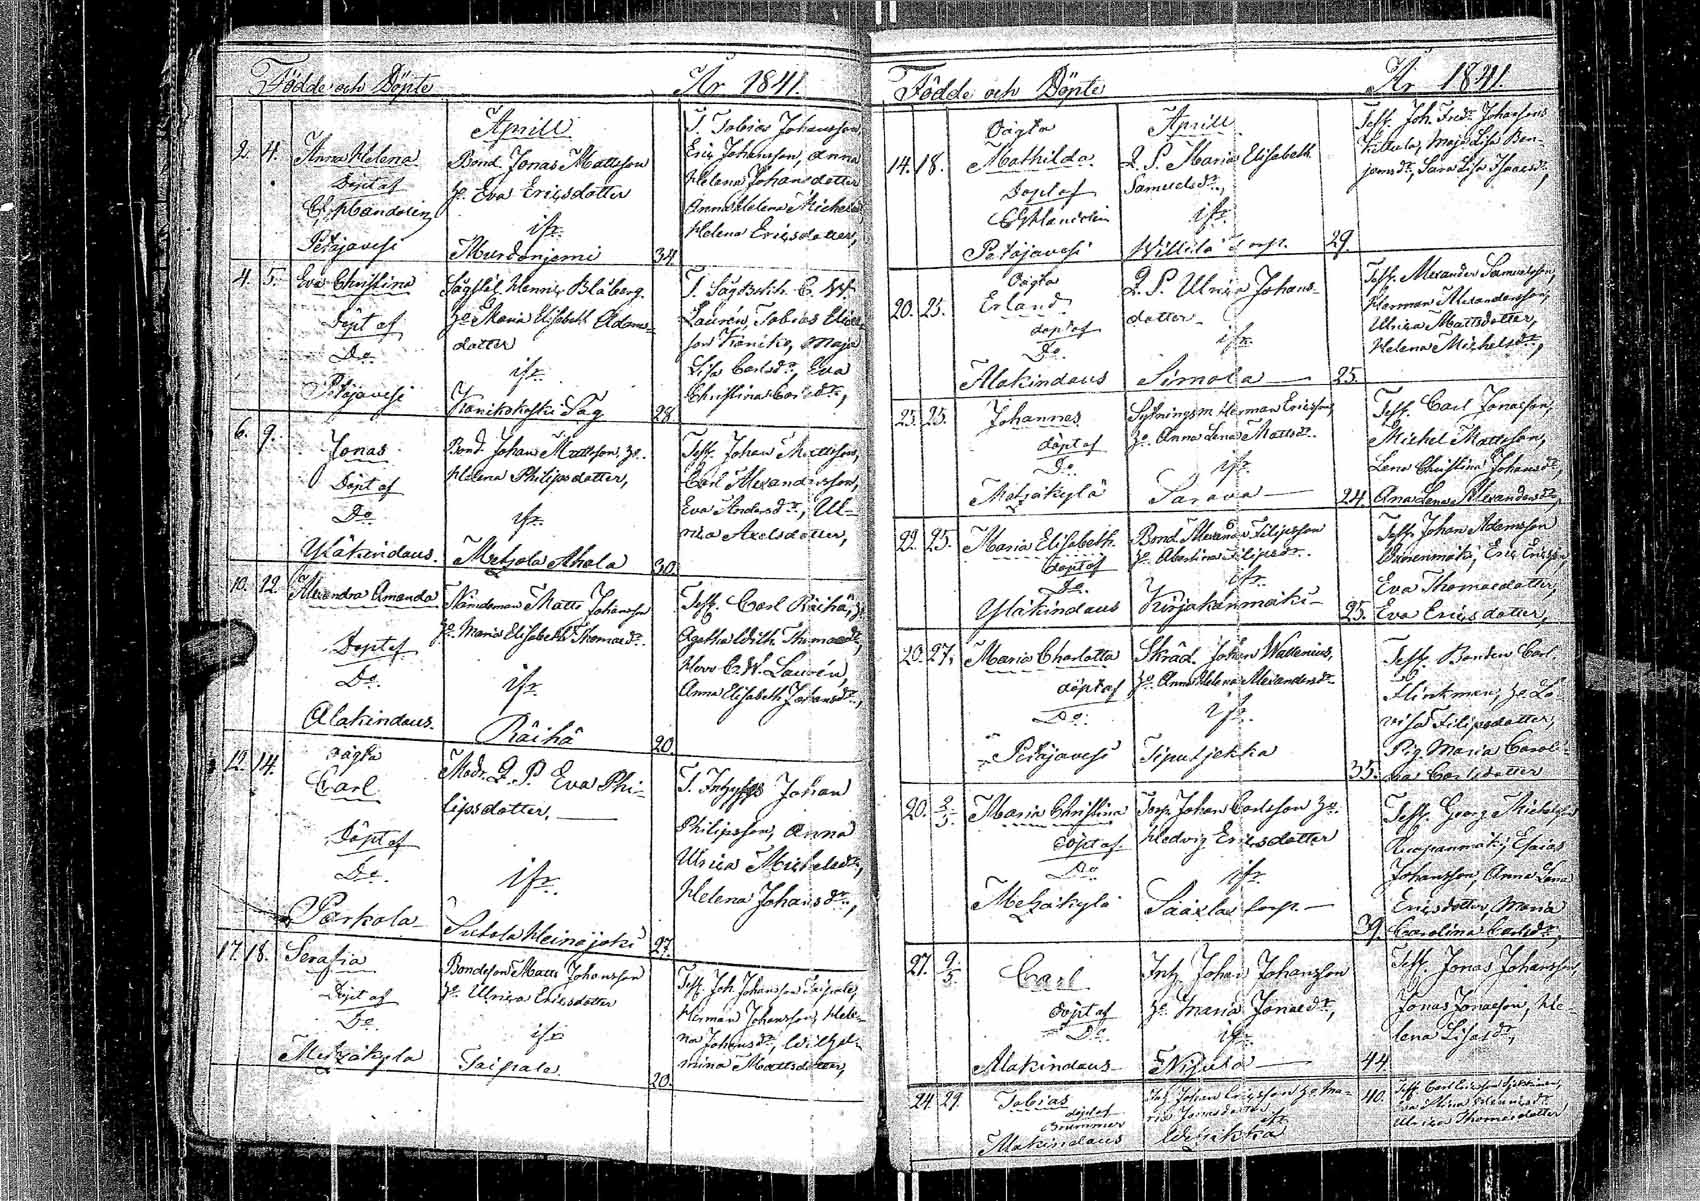 Födde och Döpte
År 1841.
Aprill
2. 4. Anna Helena
Döpt af
Petäjävesi
Bond. Jonas Mattsson
h. Eva Ericsdotter
ifr.
Mursonjemi
34
T. Tobias Johansson,
Eric Johansson, Anna
Helena Johansdotter
Anna Helena Michelsdr
Helena Ericsdotter,
4. 5. Eva Christina
Döpt af
Do
Petäjävesi
Henric Blåberg
ho Maria Elisabeth Adams-
dotter
ifr.
Kanikokoski Såg
28
T. C. W.
Laurén, Tobias
Maja
Lisa Carlsdr, Eva
Christina
6. 9. Jonas
Döpt af
Do
Yläkindaus.
Bond. Johan Mattsson, ho.
Helena Philipsdotter,
ifr.
Metzola Ahola
30.
Test. Johan Mattsson,
Carl Alexandersson,
Eva Andersdr, Ul-
rica Axelsdotter,
10. 12. Alexandra Amanda
Döpt af
Do.
Alakindaus.
Nämdeman Matts Johansson
ho. Maria Elisabeth Thomasdr.
ifr.
Räihä
20.
Test. Carl Räihä, ho
Agatha Wilh. Thomasdr,
Herr C. W. Laurén,
Anna Elisabeth Johansdr,
12. 14. oägta
Carl
Döpt af
Do.
Parkola
Modr. Q. P. Eva Phi-
lipsdotter,
ifr.
Sutola Heinojoki
27.
T. Johan
Philipsson, Anna
Ulrica Michelsdr,
Helena Johansdr,
17. 18. Serafia
Döpt af
Do.
Metzäkylä
Bondeson Matts Johansson
ho Ulrica Ericsdotter
ifr
Taipale.
20.
Test. Joh. Johansson Taipale,
Herman Johansson, Hele-
na Johansdr, Wilhel-
mina Mattsdotter,
Födde och Döpte
År 1841.
Aprill
14. 18. Oägta
Mathilda
Döpt af
Petäjävesi
Q. P. Maria Elisabeth
Samuelsdr,
ifr.
Willilä torp.
29.
Test. Joh. Fredr. Johansson
Maja Lisa Ben-
jamsdr, Sara Lisa Isacsdr,
20. 25. Oägta
Erland
döpt af
Do.
Alakindaus
Q. P. Ulrica Johans-
dotter
ifr.
Simola
25.
Test. Alexander Samuelsson,
Herman Alexandersson,
Ulrica Mattsdotter,
Helena Michelsdr,
23. 25. Johannes
döpt af
Do.
Metzäkylä
Sytningsm. Herman Ericsson,
ho. Anna Lena Mattsdr.
ifr.
Sarava
24.
Test. Carl Jonasson,
Michel Mattsson,
Lena Christina Johansdr,
Ana Lena Alexandersdr,
22. 25. Maria Elisabeth
döpt af
Do.
Yläkindaus
Bond. Alexander Filipsson
ho Albertina Filipsdr.
ifr.
Kirjakanmäki
25.
Test. Johan Adamsson
Eric Ericsson,
Eva Thomasdotter,
Eva Ericsdotter,
20. 27. Maria Charlotta
döpt af
Do.
Petäjävesi
Skräd. Johan Wallenius,
ho Anna Helena Alexandersdr
ifr.
Tiputjekka
35.
Test. Bonden Carl
Flinkman, ho Lo-
visa Filipsdotter,
Pig. Maria Caroli-
na Carlsdotter
20. 2/5. Maria Christina
döpt af
Do
Metzäkylä
Torp. Johan Carlsson ho.
Hedvig Ericsdotter
ifr.
torp.
39.
Test. Georg Michelsson
Esaias
Johansson, Anna Lena
Ericsdotter, Maria
Carolina Carlsdr,
27. 9/5. Carl
döpt af
Do.
Alakindaus
Inh. Johan Johansson
ho Maria Jonasdr,
ifr.
44.
Test. Jonas Johansson,
Jonas Jonasson, He-
lena Lisa
24. 29. Tobias
döpt af
Brummer
Alakindaus
Inh. Johan Ericsson ho Ma-
ria
ifr
40.
Test. Carl Ericsson
Ulrica Thomasdotter